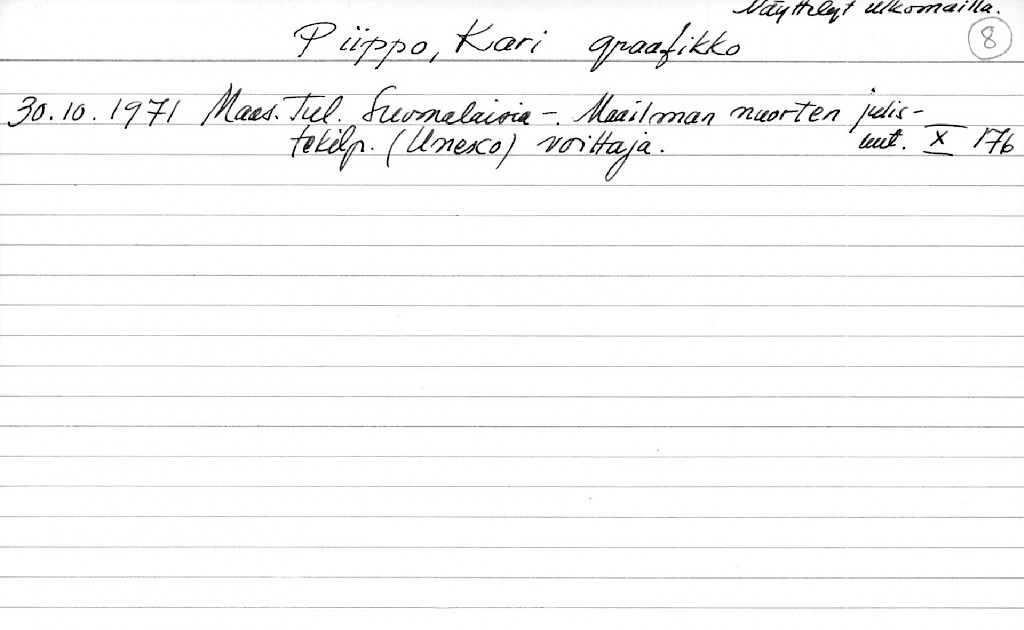 Näyttelyt ulkomailla.
Piippo, Kari graafikko 8
30.10.1971 Maas. Tul. Suomalaisia -. Maailman nuorten julis-
tekilp. (Unesco) voittaja. uut. X 176